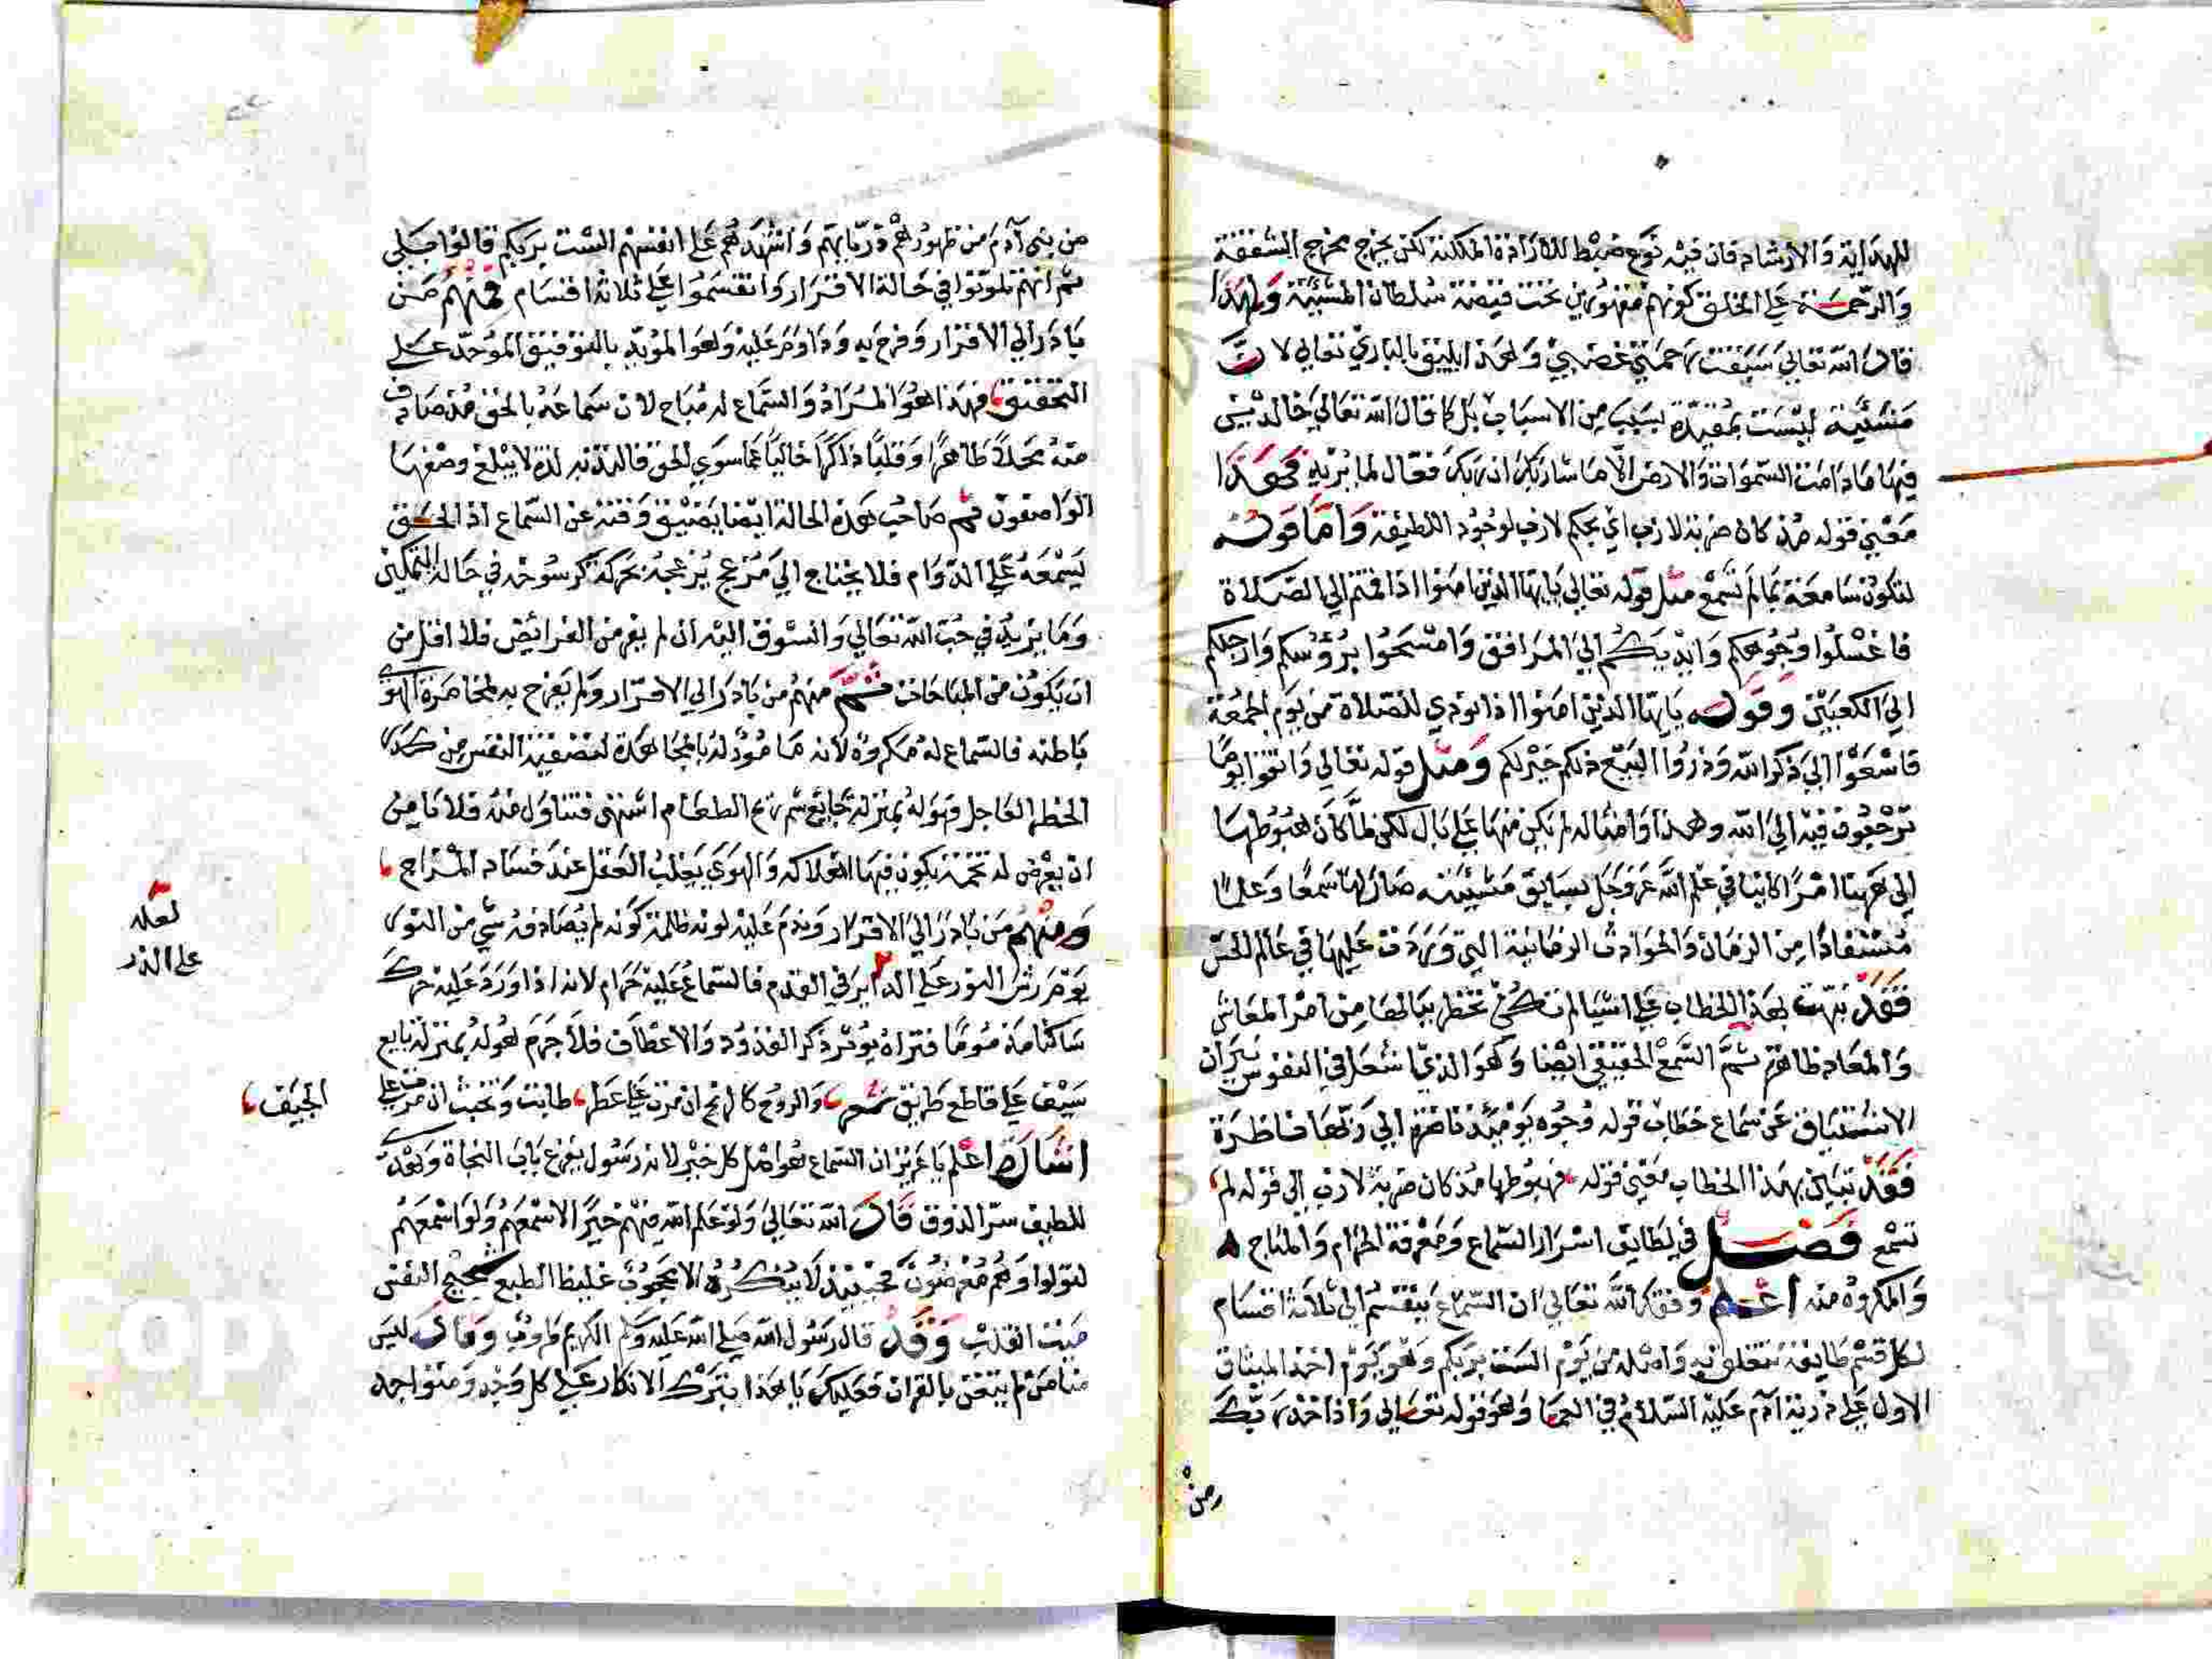 للهداية والارشاد فان فيه نوع ضبط للارادة الممكنة لكن يخرج مخرج الشفقة
والرحمة على الخلق كونهم مقهورين تحت قبضة سلطان المشيئة ولهذا
قال الله تعالى سبقت رحمتي غضبي وهذا يليق بالباري تعالى لان
مشيئة ليست بمقيدة بسبب من الاسباب بل كما قال الله تعالى خالدين
فيها ما دامت السموات والارض الا ما شاء ربك ان ربك فعال لما يريد فهذا
معنى قوله مذ كان ضربة لازب اي بحكم لازب لوجود اللطيفة واما قوله
لتكون سامعة بما لم تسمع مثل قوله تعالى يايها الذين امنوا اذا قمتم الى الصلاة
فاغسلوا وجوهكم وايديكم الى المرافق وامسحوا برؤسكم وارجلكم
الى الكعبين وقوله يايها الذين امنوا اذا نودي للصلاة من يوم الجمعة
فاسعوا الى ذكر الله وذروا البيع ذلكم خير لكم ومثل قوله تعالى واتقوا يوما
ترجعون فيه الى الله وهذا وامثاله لم يكن منها على بال لكن لما كان هبوطها
الى هاهنا امرا كاينا في علم الله عز وجل بسابق مشيئته صار لها سمعا وعلما
مستفادا من الزمان والحوادث الزمانية التي وردت عليها في عالم الحس
فقد نبهت بهذا الخطاب على اشيا لم تكن تخطر ببالها من امر المعاش
والمعاد ظاهرا ثم السمع الحقيقي ايضا وهو الذي اشعل في النفوس نيران
الاشتياق عن سماع خطاب قوله وجوه يومئذ ناضرة الى ربها ناظرة
فقد تبين بهذا الخطاب معنى قوله فهبوطها مذ كان ضربة لازب الى قوله لم
تسمع فصل في لطايف اسرار السماع ومعرفة الحرام والمباح
والمكروه منه اعلم وفقك الله تعالى ان السماع ينقسم الى ثلاثة اقسام
لكل قسم طايفة تتعلق به واصله من يوم الست بربكم وهو يوم اخذ الميثاق
الاول على ذرية آدم عليه السلام في العما وهو قوله تعالى واذ اخذ ربك
من
من بني آدم من ظهورهم ذرياتهم واشهدهم على انفسهم الست بربكم قالوا بلى
ثم انهم تلوثوا في حالة الاقرار وانقسموا على ثلاثة اقسام فمنهم من
بادر الى الاقرار وفرح به وداوم عليه وهو المؤيد بالتوفيق الموحد على
التحقيق فهذا هو المراد والسماع له مباح لان سماعه بالحق مذ صادف
منه محلا طاهرا وقلبا ذاكرا خاليا عما سوى الحق فالتذ به لذة لا يبلغ وصفها
الواصفون ثم صاحب هذه الحالة ايضا يضيق وقته عن السماع اذ الحق
يسمعه على الدوام فلا يحتاج الى مزعج يزعجه بحركة لرسوخه في حالة التمكين
وما يزيده في حب الله تعالى والشوق اليه ان لم يعد من الفرائض فلا اقل من
ان يكون من المباحات ثم منهم من بادر الى الاقرار ولم يفرح به لمخامرة الهوى
باطنه فالسماع له مكروه لانه مأمور له بالمجاهدة لتصفية النفس من كدر
الحظ العاجل فهو له بمنزلة جايع شم ريح الطعام اشتهى فتناول منه فلا نامن
ان يعرض له تخمة يكون فيها هلاكه والهوى يغلب العقل عند فساد المزاج
ومنهم من بادر الى الاقرار وندم عليه لونه ظلمة كونه لم يصادفه شي من النور
يوم رش النور على الداير في القدم فالسماع عليه حرام لانه اذا ورد عليه حرك
ساكنا مذموما فتراه يوثر ذكر القدود والاعطاف فلا جرم هو له بمنزلة بايع
سيف على قاطع طريق شعر والروح كالريح ان مرت على عطر طابت وتخبث ان مرت على
الجيف
اشارة اعلم يا عزيز ان السماع هو اصل كل خير لانه رسول يقرع باب النجاة ويهدي
للطيف سر الذوق قال الله تعالى ولو علم الله فيهم خيرا لاسمعهم ولو اسمعهم
لتولوا وهم معرضون فحينئذ لا ينكره الا محجوب غليظ الطبع شحيح النفس
ميت القلب وقد قال رسول الله صلى الله عليه وسلم الكريم طروب وقال ليس
منا من لم يتغن بالقران فعليك يا هذا بترك الانكار على كل وجد ومتواجد
لعله
على الذر